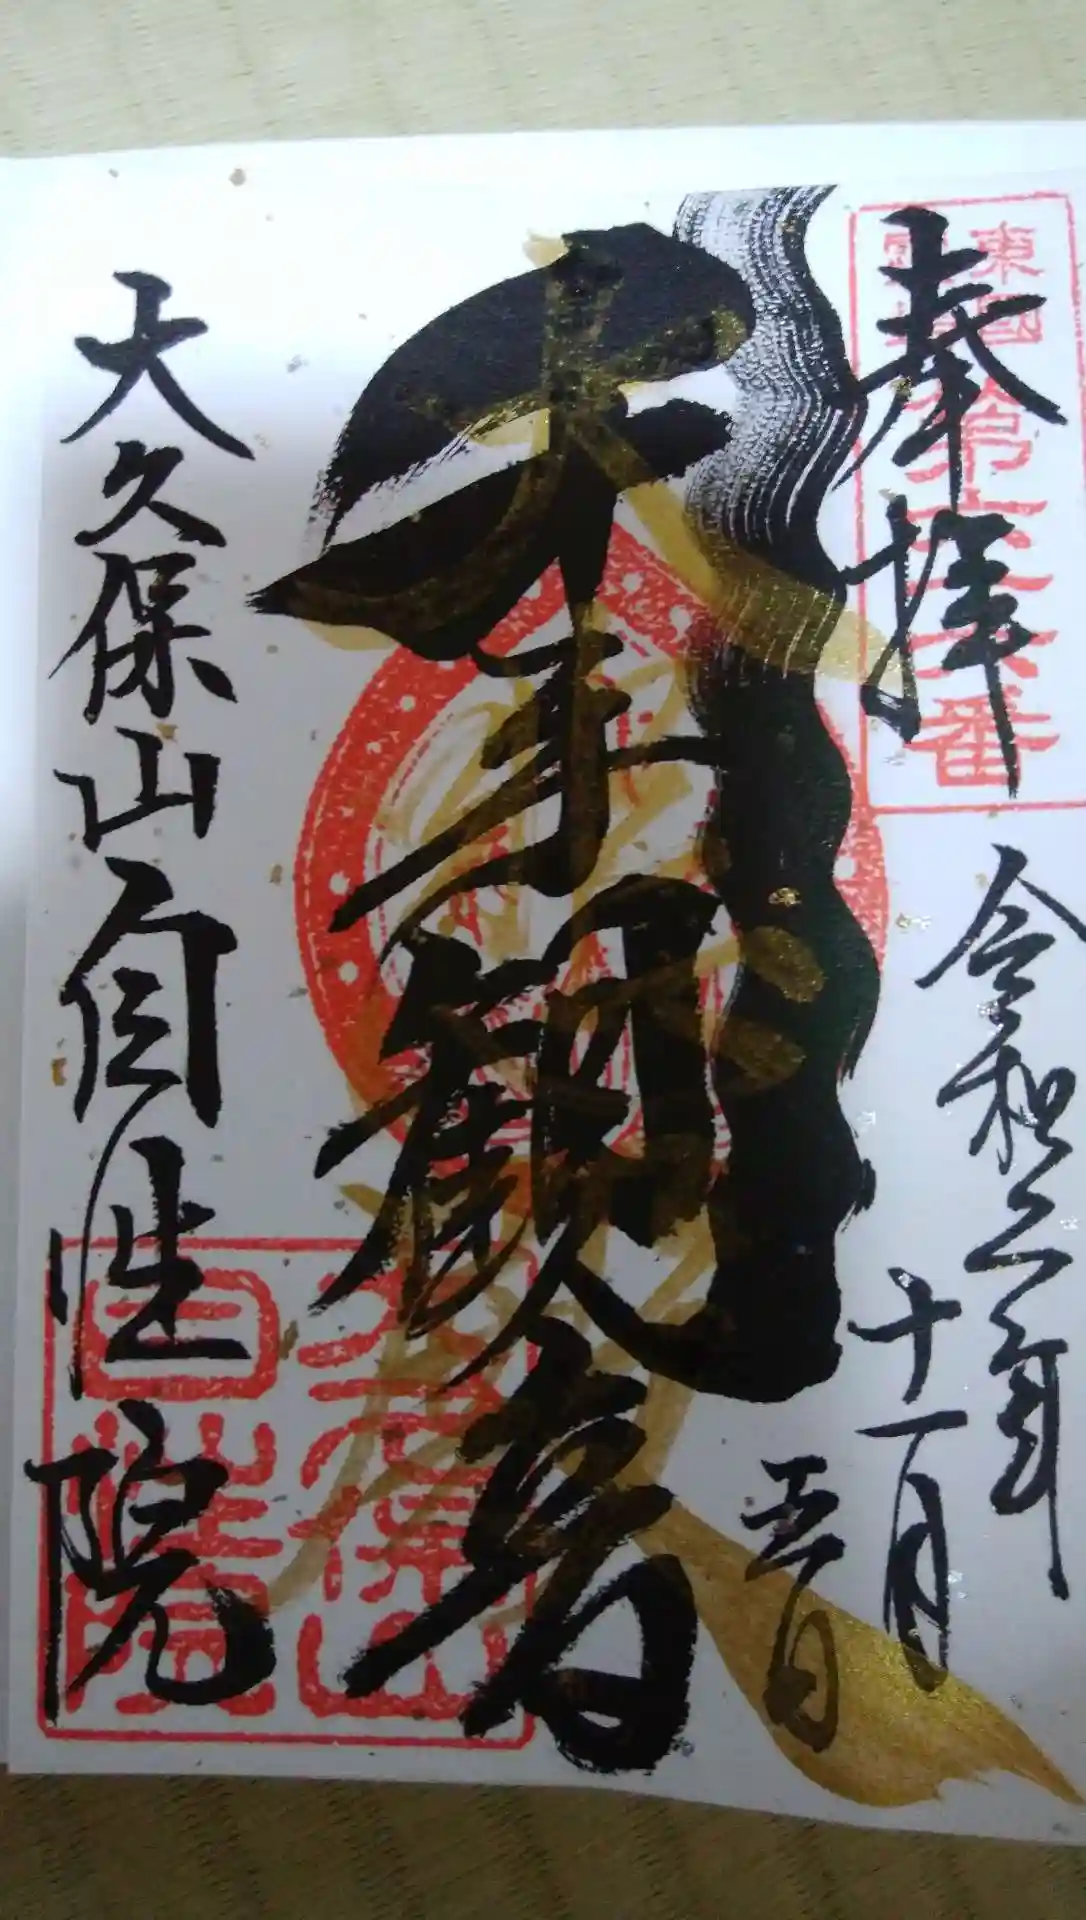 奉拝
東国
第六十六番
令和二年
十一月
五日
千手観音
大久保山自性院
大久保山
自性院